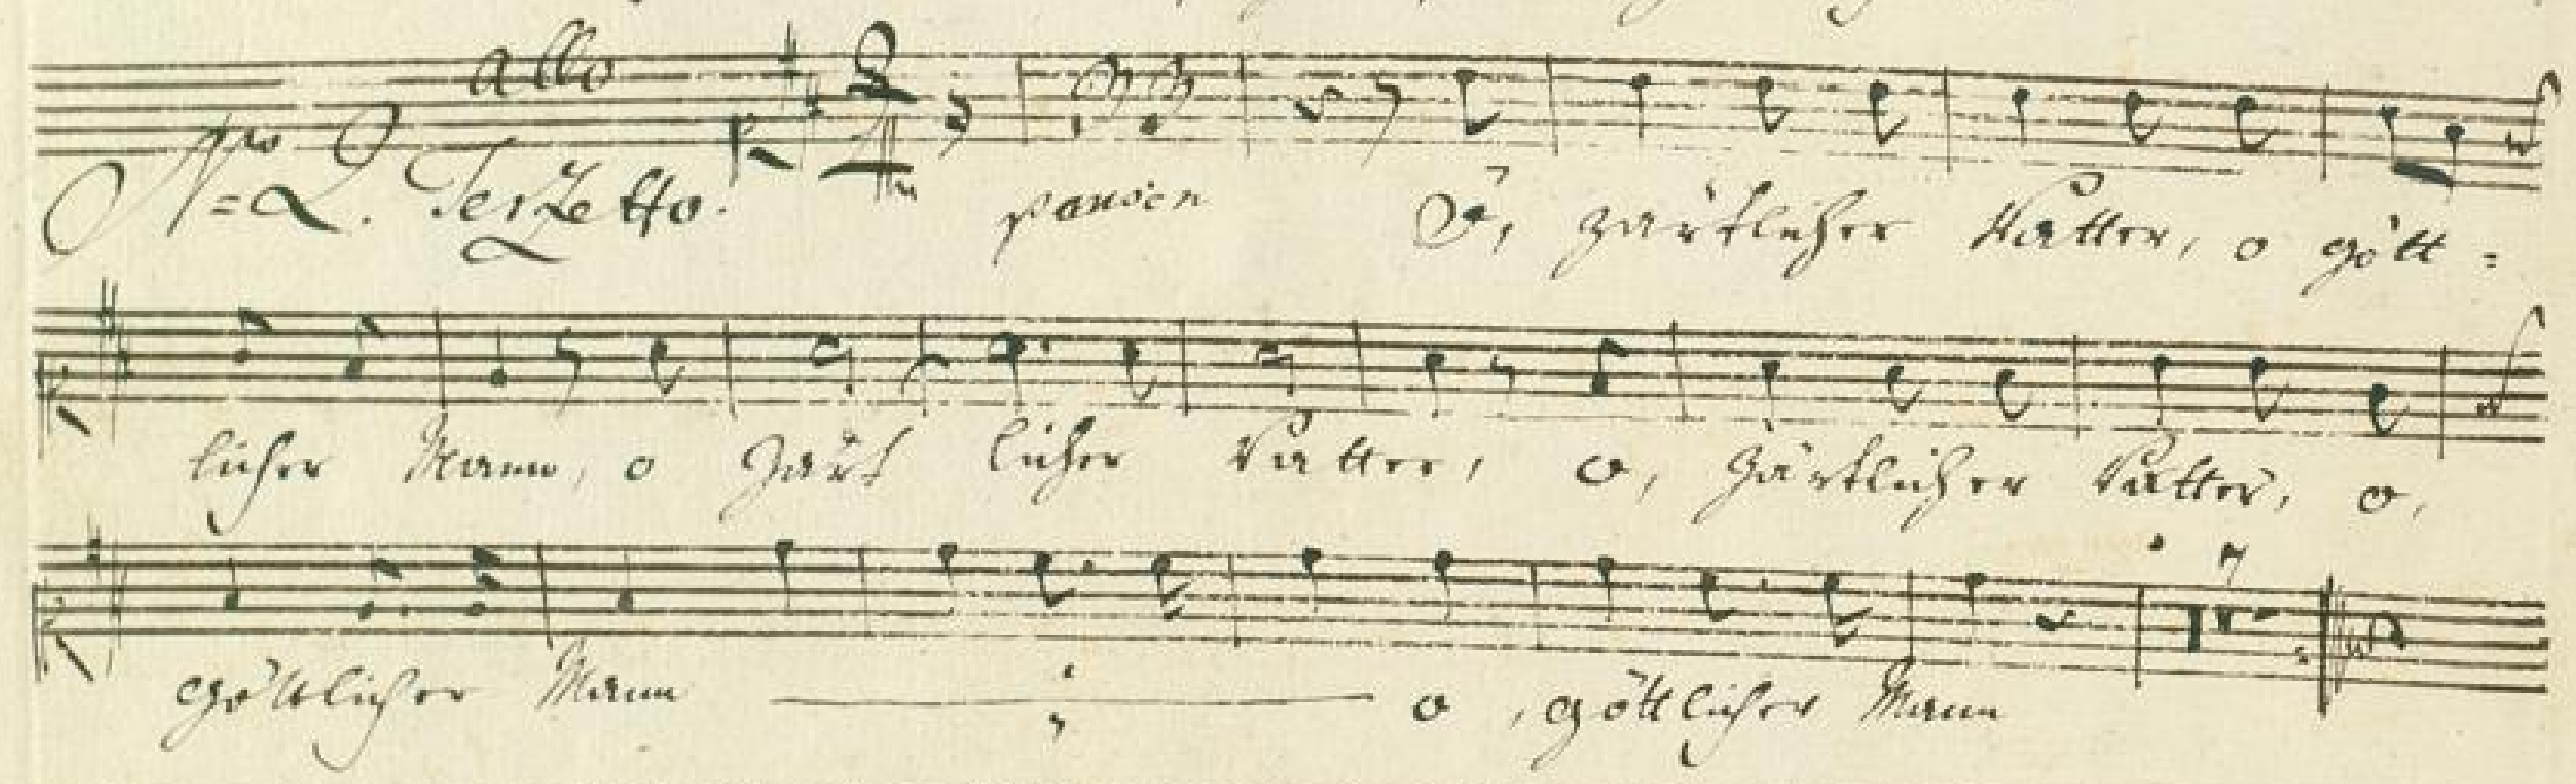 allo
No 2. Terzetto. pausen O, zärtlicher Vatter, o gött=
licher Mann, o zärt licher Vatter, o, zärtlicher Vatter, o,
göttlicher Mann o, göttlicher Mann